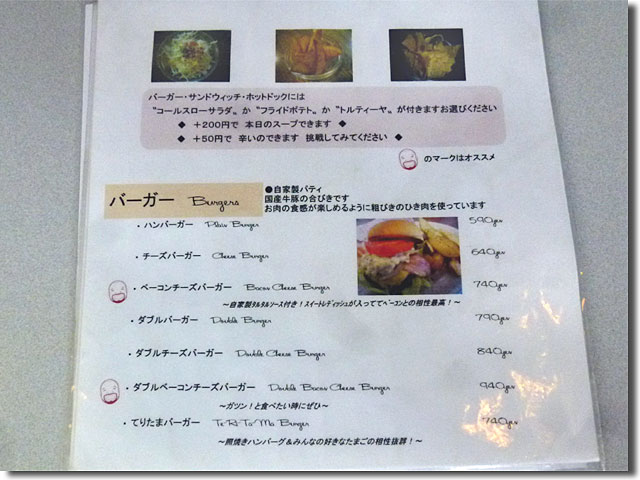 バーガー・サンドウィッチ・ホットドックには
〝コールスローサラダ〟か〝フライドポテト〟か〝トルティーヤ〟が付きますお選びください
◆ +200円で 本日のスープできます ◆
◆ +50円で 辛いのできます 挑戦してみてください ◆
のマークはオススメ
バーガー Burgers
●自家製パティ
国産牛豚の合びきです
お肉の食感が楽しめるように粗びきのひき肉を使っています
・ハンバーガー Plain Burger 590yen
・チーズバーガー Cheese Burger 640yen
・ベーコンチーズバーガー Bacon Cheese Burger 740yen
~自家製タルタルソース付き!スイートレディッシュが入っててベーコンとの相性最高!~
・ダブルバーガー Double Burger 790yen
・ダブルチーズバーガー Double Cheese Burger 840yen
・ダブルベーコンチーズバーガー Double Bacon Cheese Burger 940yen
~ガツン!と食べたい時にぜひ~
・てりたまバーガー Te-Ri-Ta-Ma Burger 740yen
~照焼きハンバーグ&みんなの好きなたまごの相性抜群!~